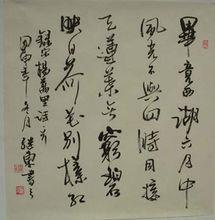 畢竟西湖六月中
風光不與四時同接
天蓮葉无窮碧
映日荷花別樣紅
錄宋楊萬里詩